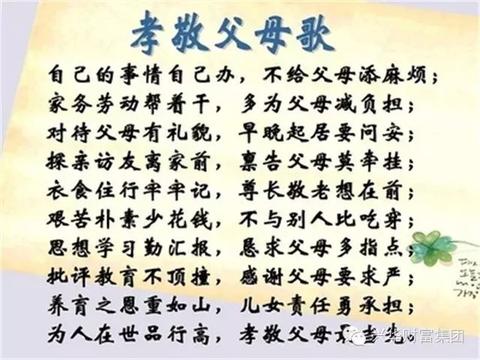 孝敬父母歌
自己的事情自己办，不给父母添麻烦；
家务劳动帮着干，多为父母减负担；
对待父母有礼貌，早晚起居要问安；
探亲访友离家前，禀告父母莫牵挂；
衣食住行牢牢记，尊长敬老想在前；
艰苦朴素少花钱，不与别人比吃穿；
思想学习勤汇报，恳求父母多指点；
批评教育不顶撞，感谢父母要求严；
养育之恩重如山，儿女责任勇承担；
为人在世品行高，孝敬父母
财富集团